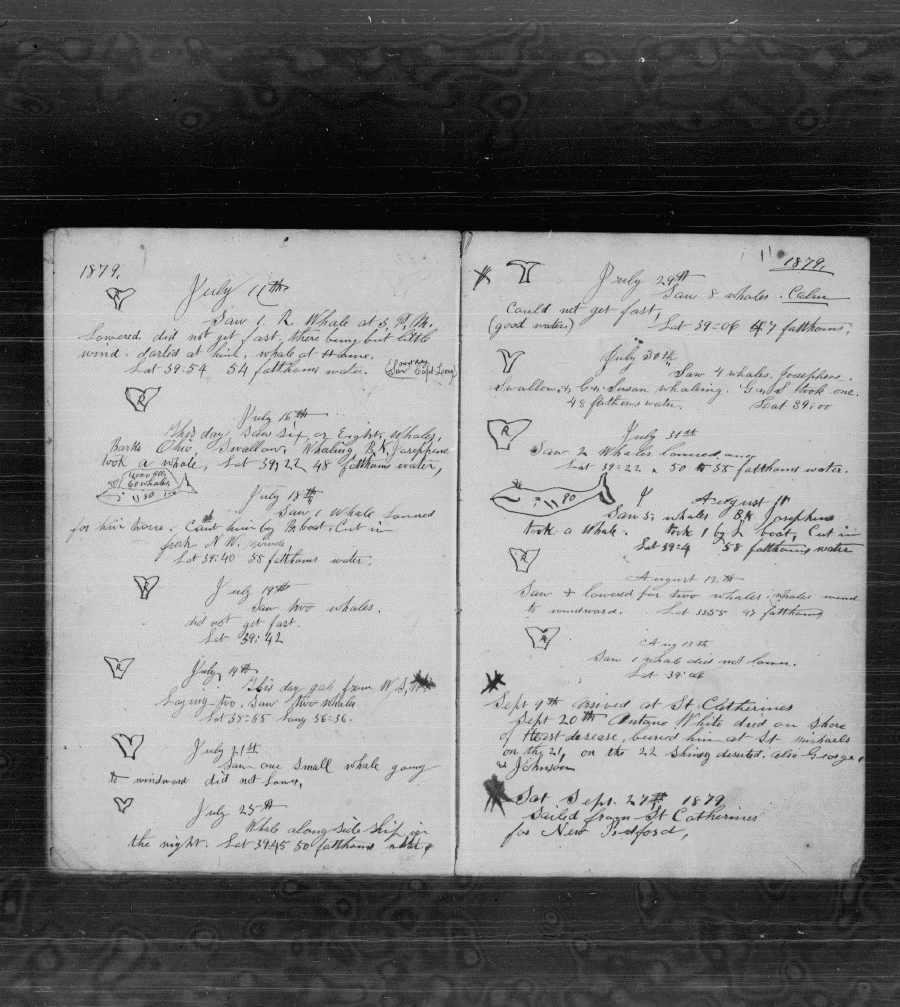 1879.
July 11th
Saw 1. R Whale at 3. P.M.
Lowered did not get fast, there being but little
wind. darted at him. whale at Home.
Lat 39:54 54 fatthoms water.
Saw Capt Long
R
July 16th
This day Saw Six or Eight, Whales,
Barks Ohio, Swallow, Whaling. B.K. Josephene
took a whale, Lat 39,22 48 fatthoms water,
60 whales
80
July 18th
Saw 1 Whale Lowered
for him horse. Caut him by B. boat, Cut in
fresh N.W. wind,
Lat 39:40 55 fatthoms water.
R
July 19th
Saw two whales.
did not get fast.
Lat 39:42
R
July 19th
This day gale from W.S.W.
Laying too. Saw two whales
Lat 38=55 Long 56=36.
July 21st
Saw one small whale going
to windward did not Lower,
July 25th
Whale alongside Ship in
the night. Lat 39:45 50 fatthoms
1879,
July 29th
Saw 8 whales. Calm
Could not get fast,
(good water) Lat 39=06 47 fatthoms.
July 30th
Saw 4 whales, Josephene
Swallow, & G & Susan whaling. G & S took one.
48 fathoms water. Lat 39:00
R
July 31st
Saw 2 Whales lowered
Lat 39=22 50 to 55 fatthoms water.
80
August 1st
Saw 5. whales Bk Josephene
took a Whale. took 1 by L boat, Cut in
Lat 39=4 58 fatthoms water
R
August 12th
Saw & lowered for two whales. whales went
to windward. Lat 38:55 47 fatthoms
R
Aug 13th
Saw 1 whale did not lower.
Lat 39:06
Sept 9th arrived at St Catherines
Sept 20th Antone White died on shore
of Heart desease, buried him at St michaels
on the 21, on the 22 Shiney deserted. also George
Johnson
Sat Sept. 27th 1879
Sailed from St Catherines
for New Bedford,